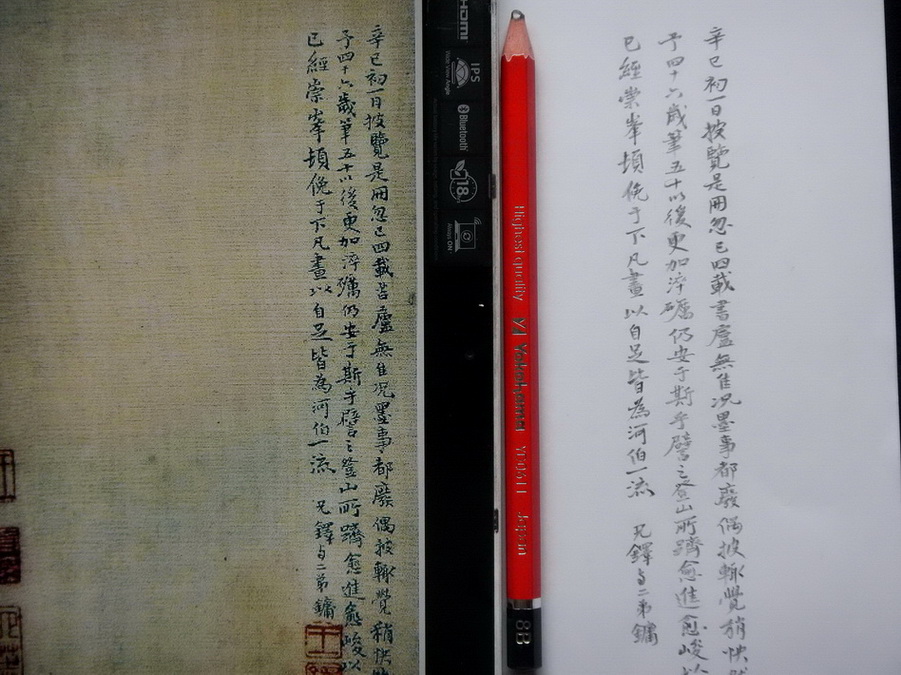 辛巳初一日披覽是冊忽已四載苫廬無佳况墨事都廢偶披輙覺稍快
予四十六歲筆五十以後更加淬礪仍安于斯乎譬之登山所躋愈進愈峻以
已經崇峯頂俛于下凡畫以自足皆為河伯一流 兄鐸与二弟鏞
HDMI
IPS
Wide view Angle
Bluetooth
18
Always ON
Highest quality YJ Yokohama Japan
8B
辛巳初一日披覽是冊忽已四載書廬無佳况墨事都廢偶披輙覺稍快
予四十六歲筆五十以後更加淬礪仍安于斯乎譬之登山所躋愈進愈峻以
已經崇峯頂俛于下凡畫以自足皆為河伯一流 兄鐸与二弟鏞